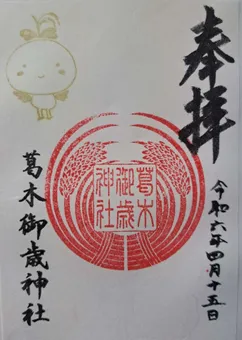 奉拝
令和六年四月十五日
葛木
御歳
神社
葛木御歳神社